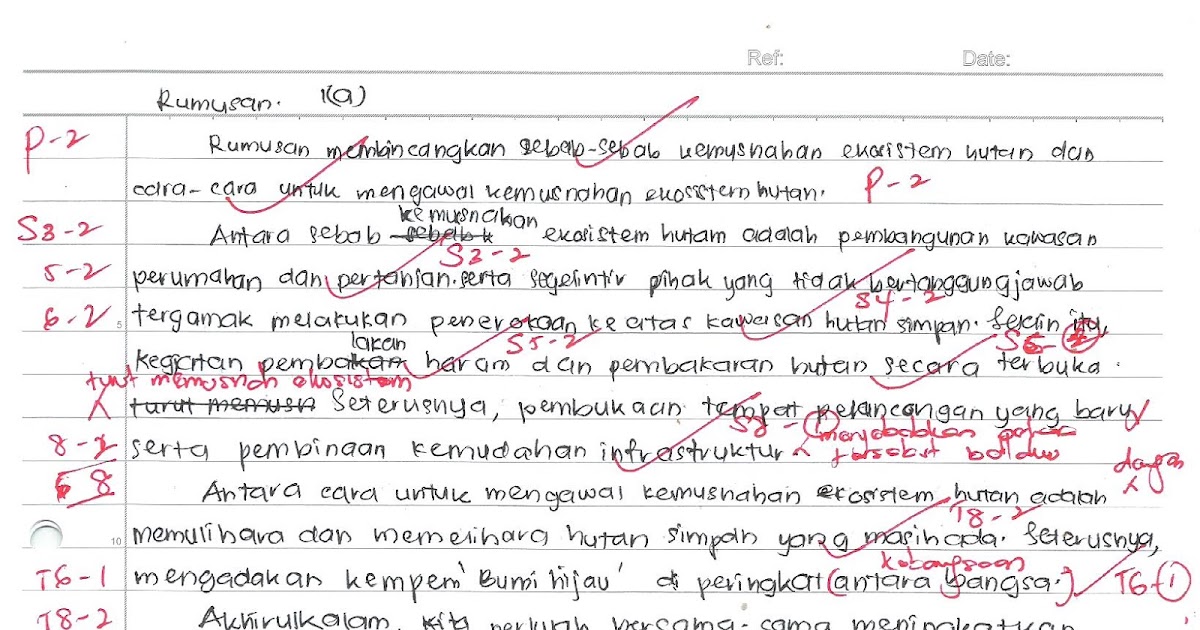 Ref: Date:
Rumusan. 1(a)
P-2 Rumusan membincangkan sebab-sebab kemusnahan ekosistem hutan dan
cara-cara untuk mengawal kemusnahan ekosistem hutan. P-2
kemusnahan
S3-2 Antara sebab ekosistem hutan adalah pembangunan kawasan
S3-2
5-2 perumahan dan pertanian serta segelintir pihak yang tidak bertanggungjawab
S4-2
6-2 5 tergamak melakukan penerokaan ke atas kawasan hutan simpan. Selain itu,
lakan S5-2
kegiatan pembalakan haram dan pembakaran hutan secara terbuka.
turut memusnah ekosistem
turut memusn Seterusnya, pembukaan tempat pelancongan yang baru
S8-1 menyebabkan
8-2 serta pembinaan kemudahan infrastruktur tersebut berlaku
dengan
8 Antara cara untuk mengawal kemusnahan ekosistem hutan adalah
T8-2
10 memulihara dan memelihara hutan simpan yang masih ada. Seterusnya,
kebangsaan
T6-1 mengadakan kempen 'Bumi hijau' di peringkat (antara bangsa.) T6-1
T8-2 Akhirulkalam, kita perlulah bersama-sama meningkatkan